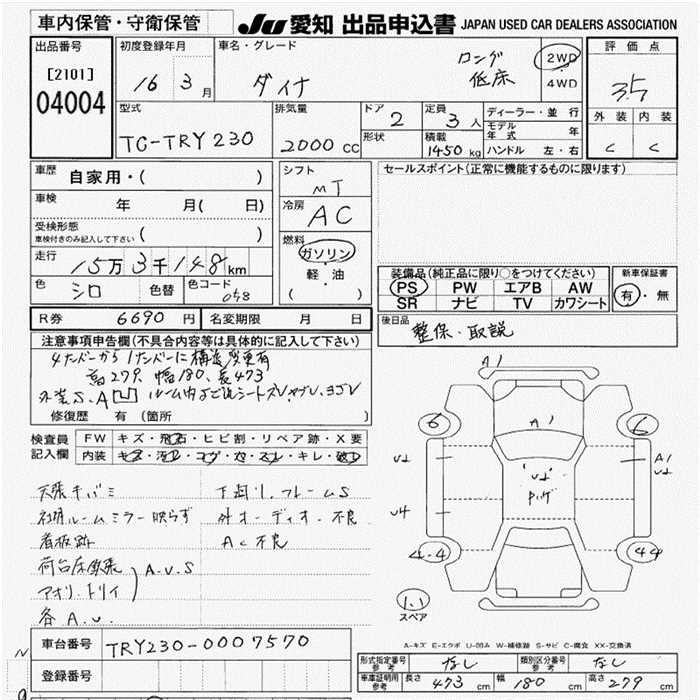 車内保管・守衛保管
JU 愛知 出品申込書 JAPAN USED CAR DEALERS ASSOCIATION
出品番号
[2101]
04004
初度登録年月
16 3月
車名・グレード
ダイナ
ロング
低床
2WD
4WD
評価点
3.5
外装 内装
C C
型式
TC-TRY230
排気量
2000 CC
ドア
2
形状
定員
3人
積載
1450 kg
ディーラー・並行
モデル年式 年
ハンドル 左・右
車歴
自家用・( )
車検
年 月( 日)
受検形態
車検付きのみ記入して下さい ( )
走行
15万3千148km
色
シロ
色替
色コード
058
シフト
MT
冷房
AC
燃料
ガソリン
軽・油
( )
セールスポイント(正常に機能するものに限ります)
装備品(純正品に限り○をつけてください)
PS PW エアB AW
SR ナビ TV カワシート
新車保証書
有・無
R券 6690円
名変期限 月 日
後日品
整保・取説
注意事項申告欄(不具合内容等は具体的に記入して下さい)
4ナンバーから1ナンバーに構造変更有
高279、幅180、長473
修復歴 有 (箇所 )
検査員
記入欄
FW キズ・飛石・ヒビ割・リペア跡・X要
内装 キズ・汚レ・コゲ・穴・スレ・キレ・破レ
天張キバミ
下廻り、フレームS
社外ルームミラー映らず
外オーディオ不良
看板跡
AC不良
荷台床鉄板
アオリ、トリイ
A.U.S
各A.U.
A1
6
A1
6
U2
U2
A1
U2
U4
4-4
44
1.1
スペア
車台番号
TRY230-0007570
登録番号
A-キズ E-エクボ U-凹み W-補修跡 S-サビ C-腐食 XX-交換済
形式指定番号 参考 なし
類別区分番号 参考 なし
車庫証明用 参考 長さ 473 cm 幅 180 cm 高さ 279 cm